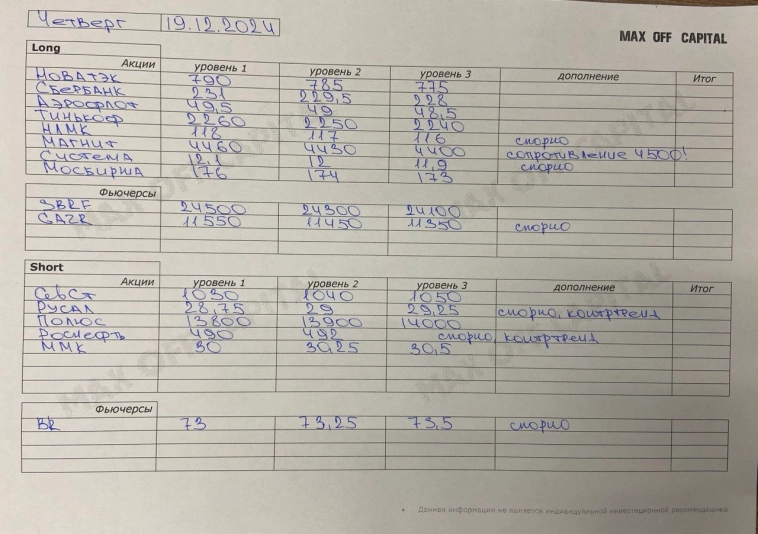 Четверг 19.12.2024
MAX OFF CAPITAL
Long
Акции уровень 1 уровень 2 уровень 3 дополнение Итог
НОВАТЭК 790 785 775
СБЕРБАНК 231 229,5 228
АЭРОФЛОТ 49,5 49 48,5
ТИНЬКОФ 2260 2250 2240
НЛМК 118 117 116
МАГНИТ 4460 4430 4400 спорно
СИСТЕМА 12,1 12 11,9 сопротивление 4500!
МОСБИРЖА 176 174 173 спорно
Фьючерсы
SBRF 24500 24300 24100
GAZR 11550 11450 11350 спорно
Short
Акции уровень 1 уровень 2 уровень 3 дополнение Итог
СевСт 1030 1040 1050
РУСАЛ 28,75 29 29,25 спорно, контртренд
ПОЛЮС 13800 13900 14000
РОСНЕФТЬ 490 492 спорно, контртренд
ММК 30 30,25 30,5
Фьючерсы
BR 73 73,25 73,5 спорно
MAX OFF CAPITAL
MAX OFF CAPITAL
MAX OFF CAPITAL
MAX OFF CAPITAL
• Данная информация не является индивидуальной инвестиционной рекомендацией